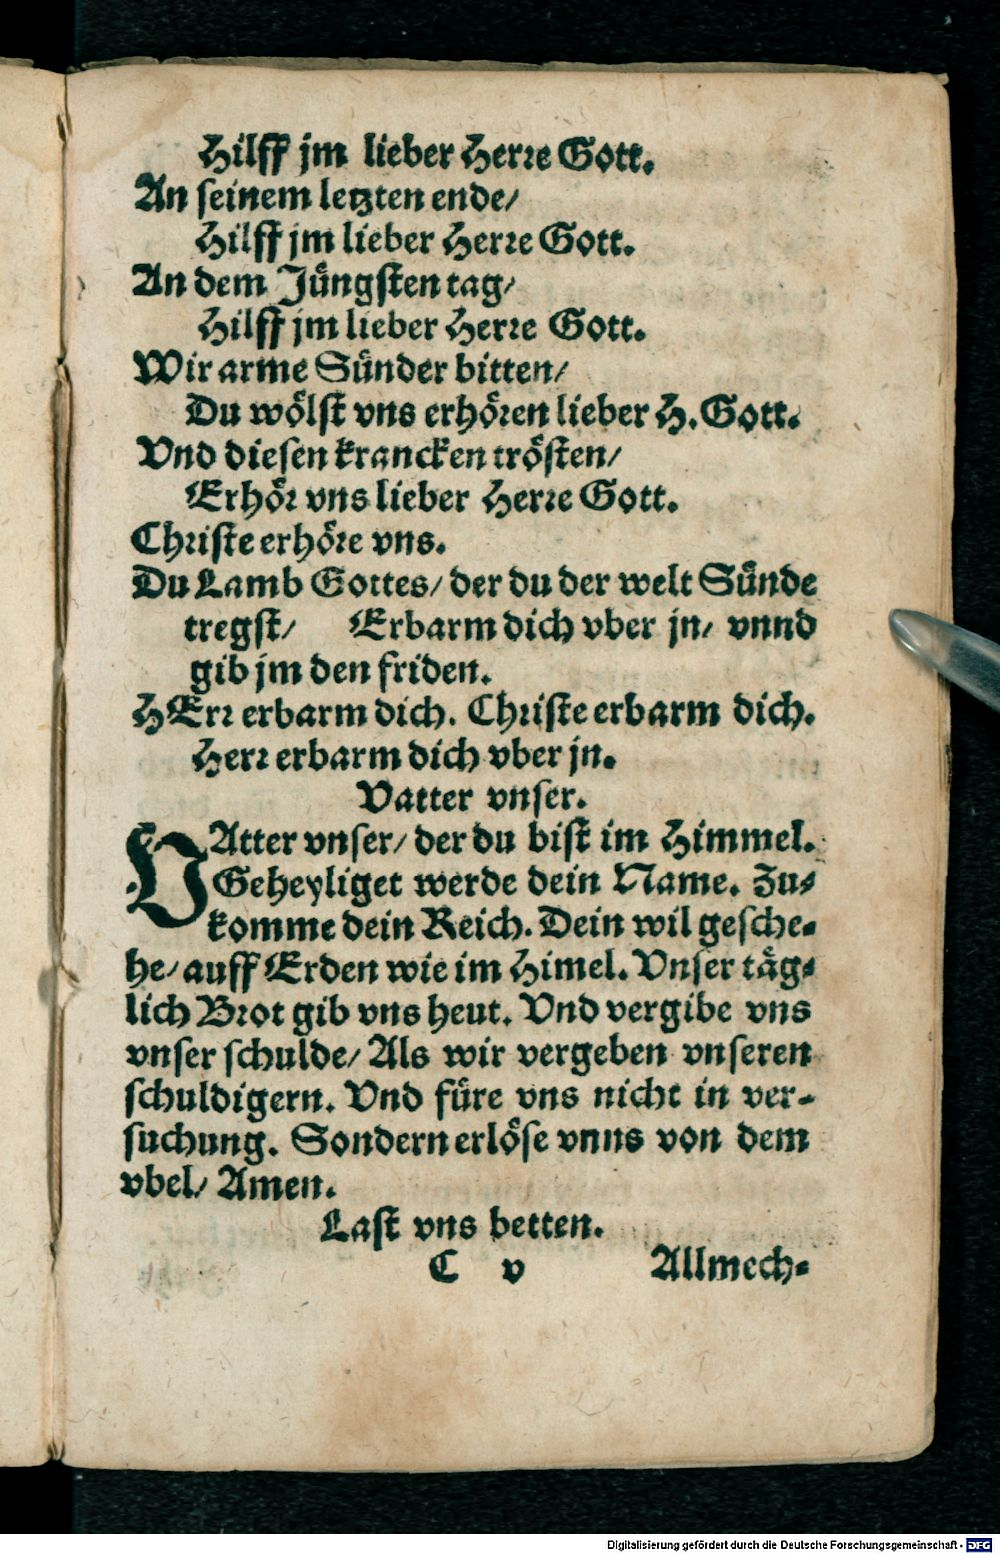 Hilff jm lieber Herre Gott.
An seinem letzten ende/
Hilff jm lieber Herre Gott.
An dem Jüngsten tag/
Hilff jm lieber Herre Gott.
Wir arme Sünder bitten/
Du wölst vns erhören lieber H. Gott.
Vnd diesen krancken trösten/
Erhör vns lieber Herre Gott.
Christe erhöre vns.
Du Lamb Gottes/ der du der welt Sünde
tregst/ Erbarm dich vber jn/ vnnd
gib jm den friden.
HErr erbarm dich. Christe erbarm dich.
Herr erbarm dich vber jn.
Vatter vnser.
VAtter vnser/ der du bist im Himmel.
Geheyliget werde dein Name. Zu-
komme dein Reich. Dein wil gesche-
he/ auff Erden wie im Himel. Vnser täg-
lich Brot gib vns heut. Vnd vergibe vns
vnser schulde/ Als wir vergeben vnseren
schuldigern. Vnd füre vns nicht in ver-
suchung. Sondern erlöse vnns von dem
vbel/ Amen.
Last vns betten.
C v Allmech-
Digitalisierung gefördert durch die Deutsche Forschungsgemeinschaft - DFG